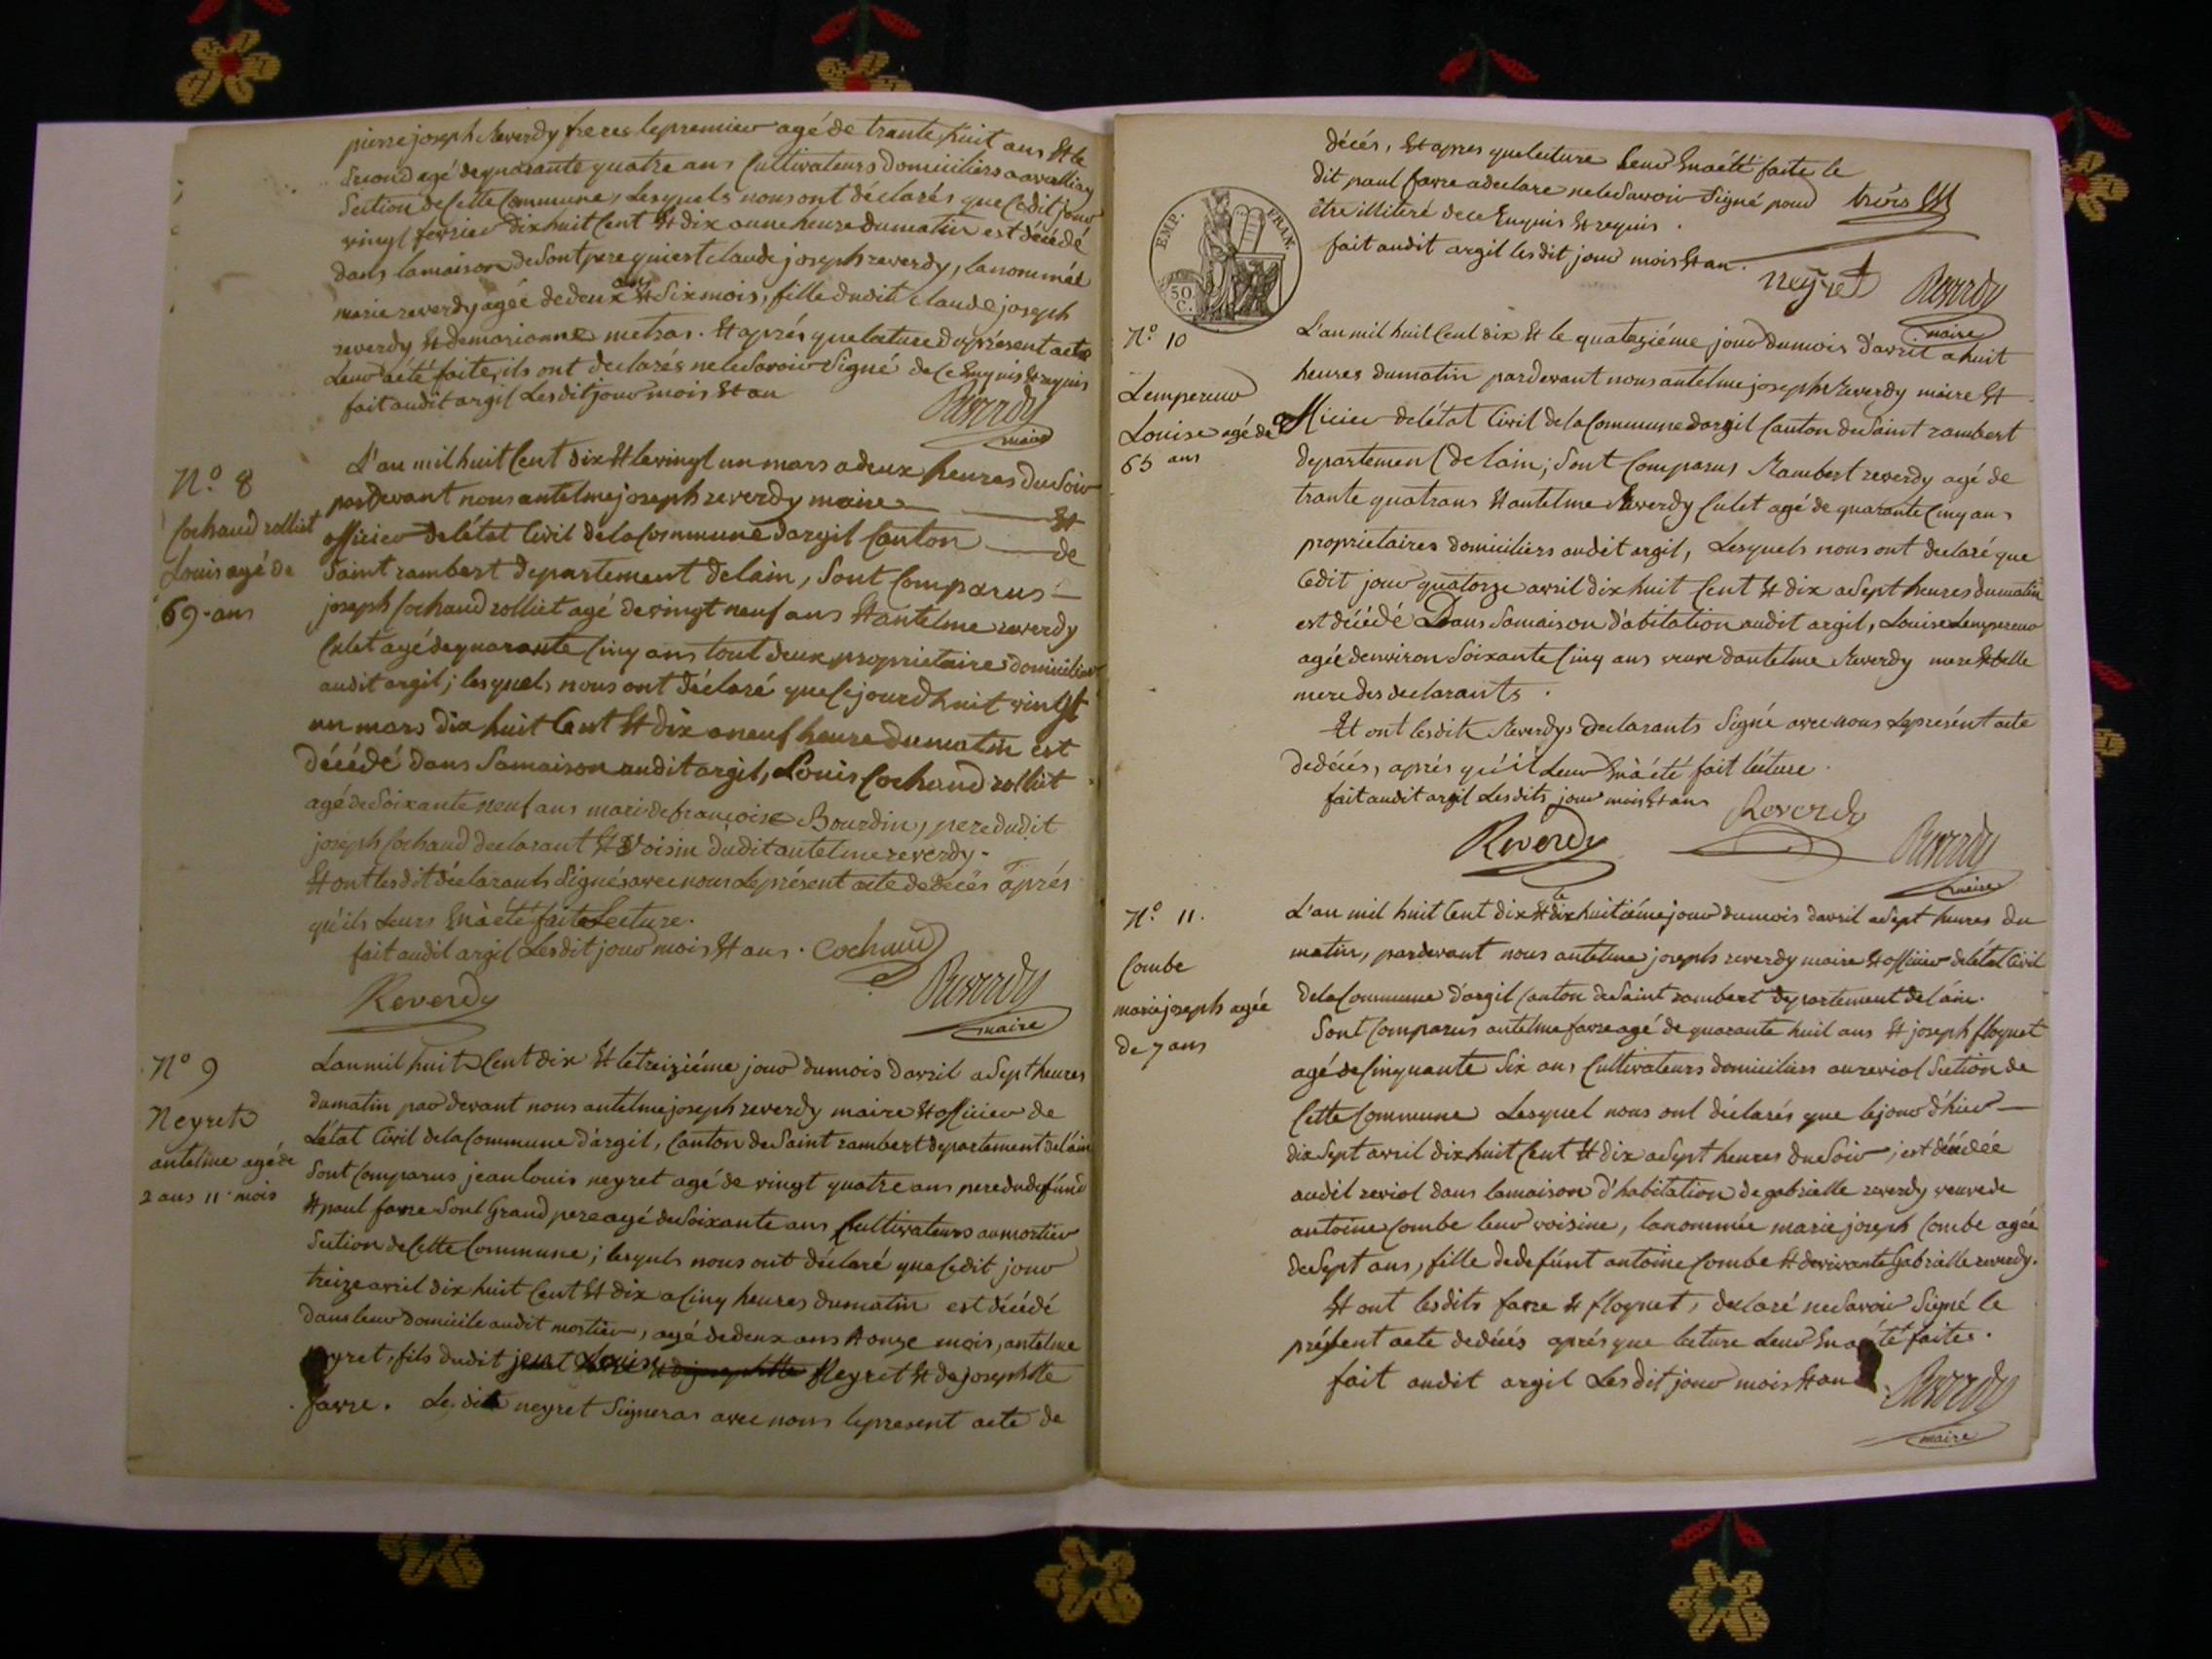 pierre joseph Reverdy freres le premier agé de trante huit ans Et le
Second agé de quarante quatre ans Cultivateurs domiciliers a
Section de Cette Commune, Lesquels nous ont déclarés que Cedit jour
vingt fevrier dix huit Cent Et dix a une heure du matin est décédé
dans la maison de Sont pere qui est claude joseph reverdy, la nommée
marie reverdy agée de deux ans Et Six mois, fille dudit claude joseph
reverdy Et de marianne metras. Et aprés que lecture du présent acte
Leur a été faite, ils ont declarés ne le Savoir Signé de Ce Enquis Et requis
fait audit argil Lesdit jour mois Et an
Reverdy
maire
N.º 8
Cochaud rolliet
Louis agé de
69 ans
L'an mil huit Cent dix Et le vingt un mars a deux heures du Soir
pardevant nous antelme joseph reverdy maire Et
officier de l'état Civil de la Commune dargil Canton de
Saint rambert departement delain, Sont Comparus
joseph Cochaud rolliet agé de vingt neuf ans Et antelme reverdy
Culet agé de quarante Cinq ans tout deux proprietaire domiciliers
audit argil; lesquels nous ont déclaré que Cejourdhuit vingt
un mars dix huit Cent Et dix a neuf heure du matin est
décédé dans Sa maison audit argil, Louis Cochaud rolliet
agé de Soixante neuf ans mari de françoise Bourdin, pere dudit
joseph Cochaud declarant Et Voisin dudit antelme reverdy.
Et ont lesdit déclarants Signés avec nous Le présent acte de decés aprés
qu'ils Leurs En à été faite Lecture.
fait audit argil Lesdit jour mois Et ans. Cochaud
Reverdy
Reverdy
maire
N.º 9
Neyret
antelme agé de
2 ans 11 mois
L'an mil huit Cent dix Et le treiziéme jour du mois d'avril a Sept heures
du matin par devant nous antelme joseph reverdy maire Et officier de
L'état Civil de la Commune d'argil, Canton de Saint rambert departement de l'ain
Sont Comparus jean louis neyret agé de vingt quatre ans pere du defünd
Et paul favre Sont Grand pere agé de Soixante ans Cultivateurs au mortier
Section de Cette Commune; lesquels nous ont déclaré que Cedit jour
treize avril dix huit Cent Et dix a Cinq heures du matin est décédé
dans leur domicile audit mortier, agé de deux ans Et onze mois, antelme
neyret, fils dudit jean Louise Neyret Et de josephtte
favre. Le dit neyret Signeras avec nous le present acte de
décés, Et apres que lecture Leur En a été faite le
dit paul favre a declare ne le Savoir Signé pour
être illiteré de ce Enquis Et requis.
fait audit argil lesdit jour mois Et an.
trois
neyret
Reverdy
maire
EMP. FRAN.
50
C.
N.º 10
Lempereur
Louise agé de
65 ans
L'an mil huit Cent dix Et le quatoziéme jour du mois d'avril a huit
heures du matin pardevant nous antelme joseph Reverdy maire Et
officier de l'état Civil de la Commune dargil Canton de Saint rambert
departement de lain; Sont Comparus Rambert reverdy agé de
trante quatrans Et antelme Reverdy Culet agé de quarante Cinq ans
proprietaires domiciliers audit argil, Lesquels nous ont declaré que
Cedit jour quatorze avril dix huit Cent Et dix a Sept heures du matin
est décédé Dans Sa maison d'abitation audit argil, Louise Lempereur
agée denviron Soixante Cinq ans veuve dantelme Reverdy mere Et belle
mere des declarants.
Et ont lesdit Reverdys declarants Signé avec nous Le présent acte
de décés, aprés qu'il Leur En à été fait lecture.
fait audit argil Lesdits jour mois Et ans
Reverdy
Reverdy
Reverdy
maire
N.º 11.
Combe
marie joseph agée
de 7 ans
L'an mil huit Cent dix Et le dix huitiéme jour du mois davril a Sept heures du
matin, pardevant nous antelme joseph reverdy maire Et officier de létat Civil
de la Commune d'argil Canton de Saint rambert departement de l'ain.
Sont Comparus antelme favre agé de quarante huit ans Et joseph floquet
agé de Cinquante Six ans Cultivateurs domiciliers au reviol Section de
Cette Commune Lesquel nous ont déclarés que le jour d'hier
dix Sept avril dix huit Cent Et dix a Sept heures du Soir, est décédée
audit reviol dans la maison d'habitation de gabrielle reverdy veuve de
antoine Combe leur voisine, la nommée marie joseph Combe agée
de Sept ans, fille de defünt antoine Combe Et de vivante Gabrielle reverdy.
Et ont lesdits favre Et floquet, declaré ne Savoir Signé le
présent acte de décés aprés que lecture Leur En a été faite.
fait audit argil Lesdit jour mois Et an
Reverdy
maire